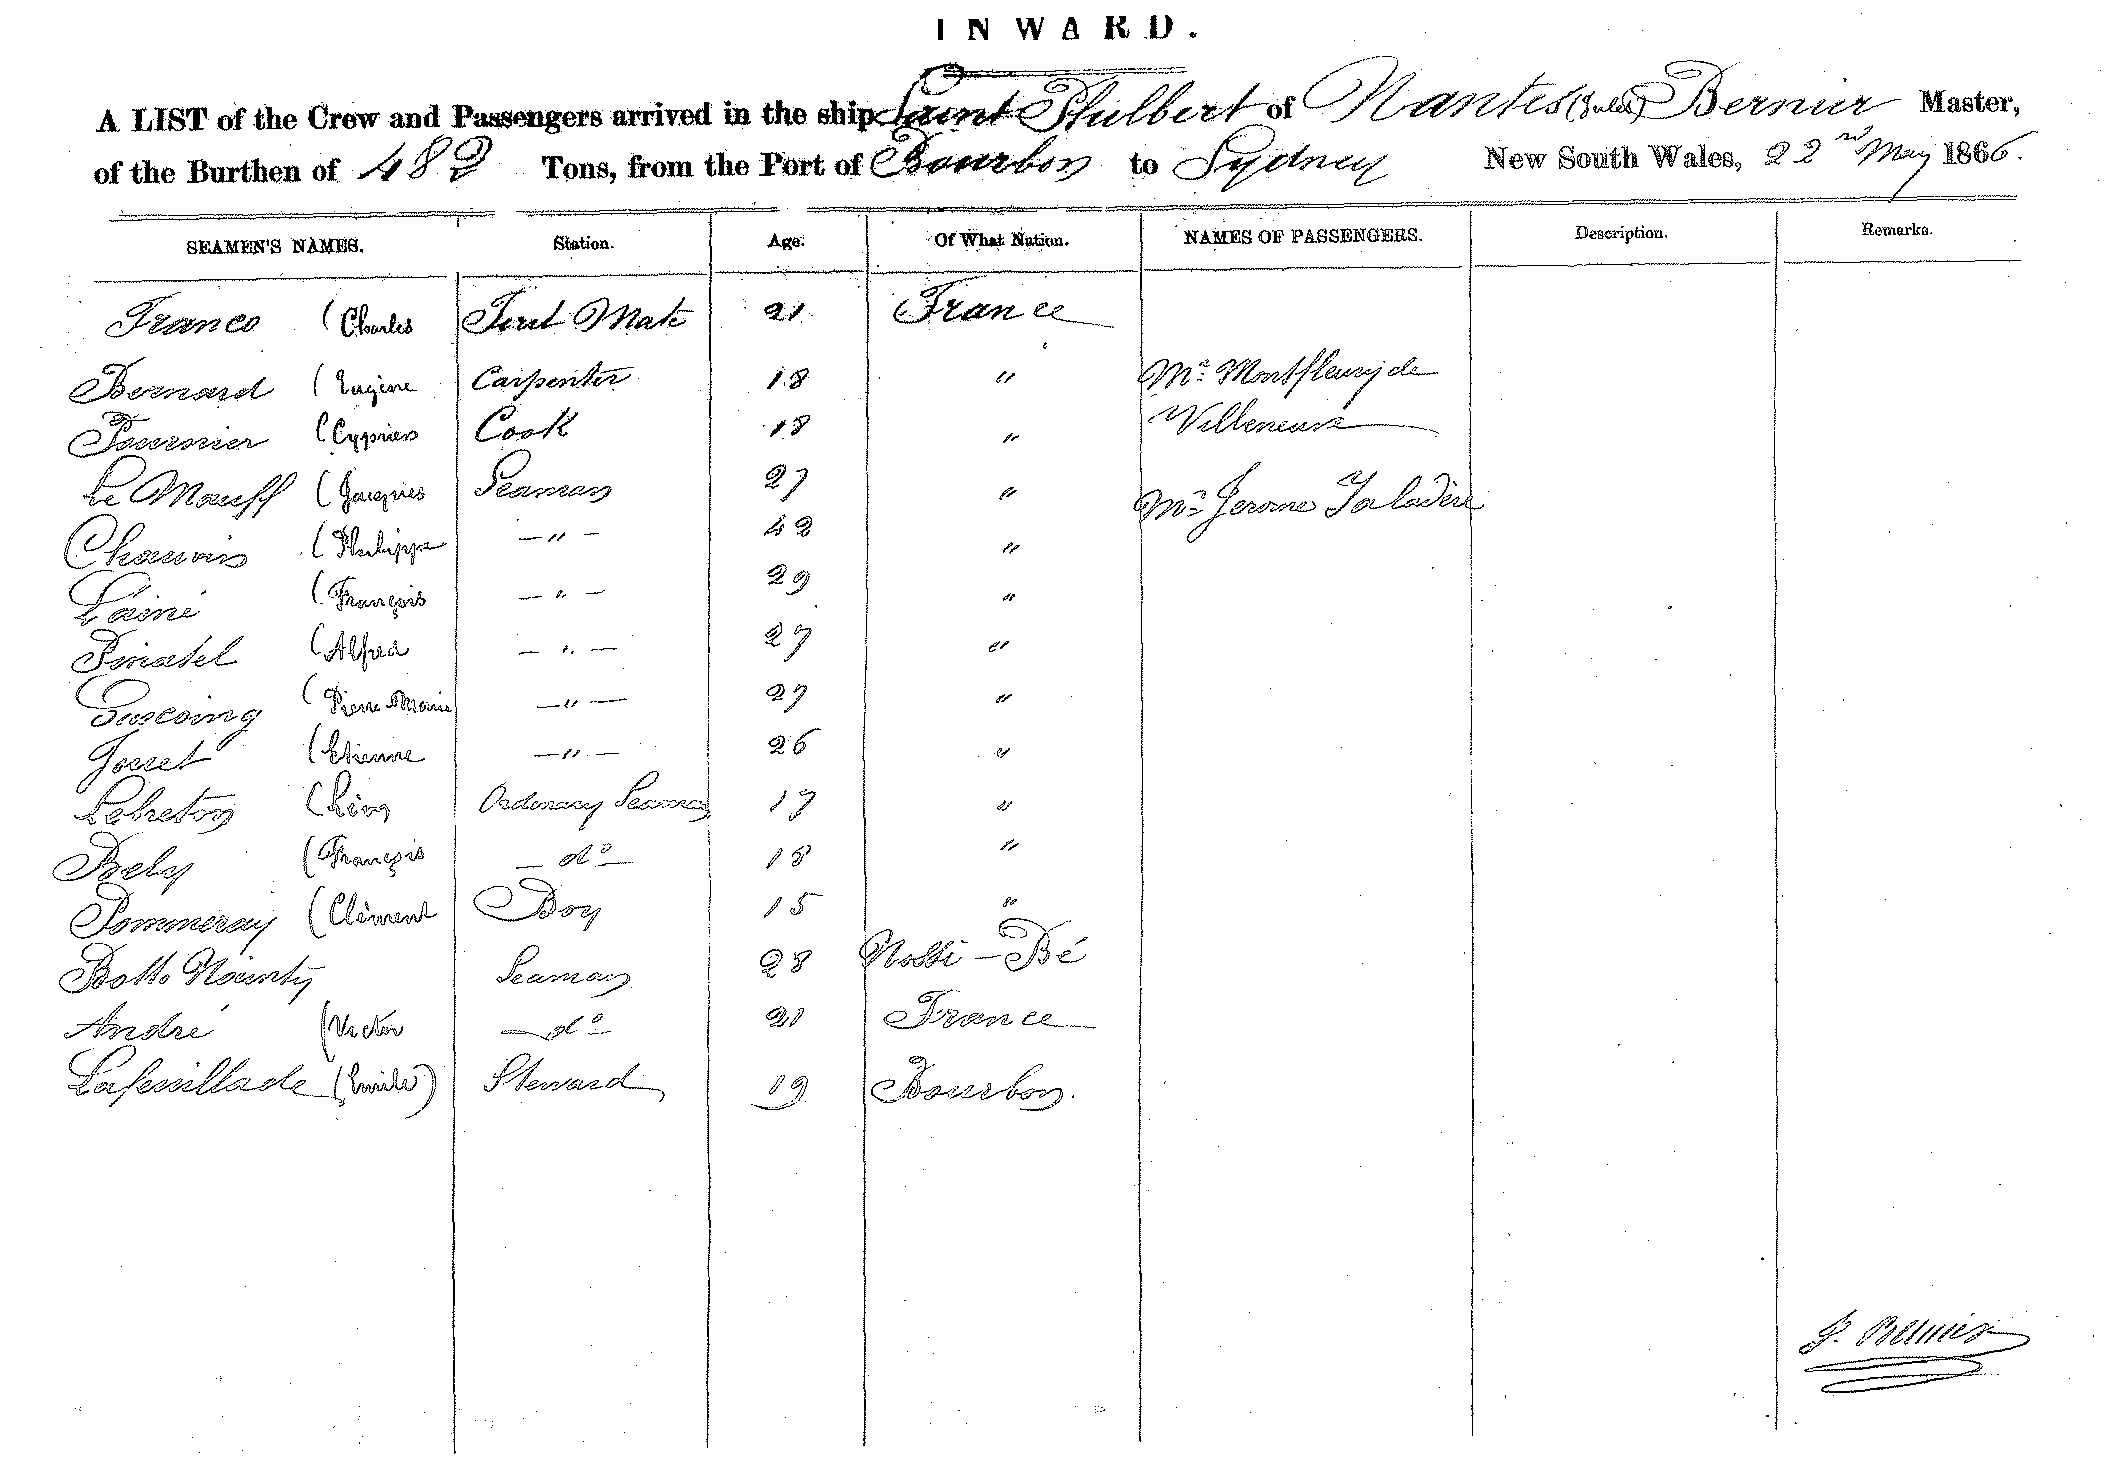 INWARD.
A LIST of the Crew and Passengers arrived in the ship Saint Philbert of Nantes (Jules) Bernier Master,
of the Burthen of 482 Tons, from the Port of Bourbon to Sydney New South Wales, 22nd May 1866.
SEAMEN'S NAMES. Station. Age. Of What Nation. NAMES OF PASSENGERS. Description. Remarks.
Franco (Charles First Mate 21 France
Bernard (Eugène Carpenter 18 " Mr Montfleury de
Fournier (Cyprien Cook 18 " Villeneuve
Le Mouff (Jacques Seaman 27 " Mr Jerome Taladère
Chauvin (Philippe — " — 42 "
Lainé (François — " — 29 "
Pinatel (Alfred — " — 27 "
Gascoing (Pierre Marie — " — 27 "
Josset (Etienne — " — 26 "
Lebreton (Léon Ordinary Seaman 17 "
Bely (François — do — 18 "
Pommeray (Clément Boy 15 "
Botto Seaman 28 Nossi-Bé
André (Victor — do — 21 France
Lafeuillade (Emile) Steward 19 Bourbon.
J. Bernier